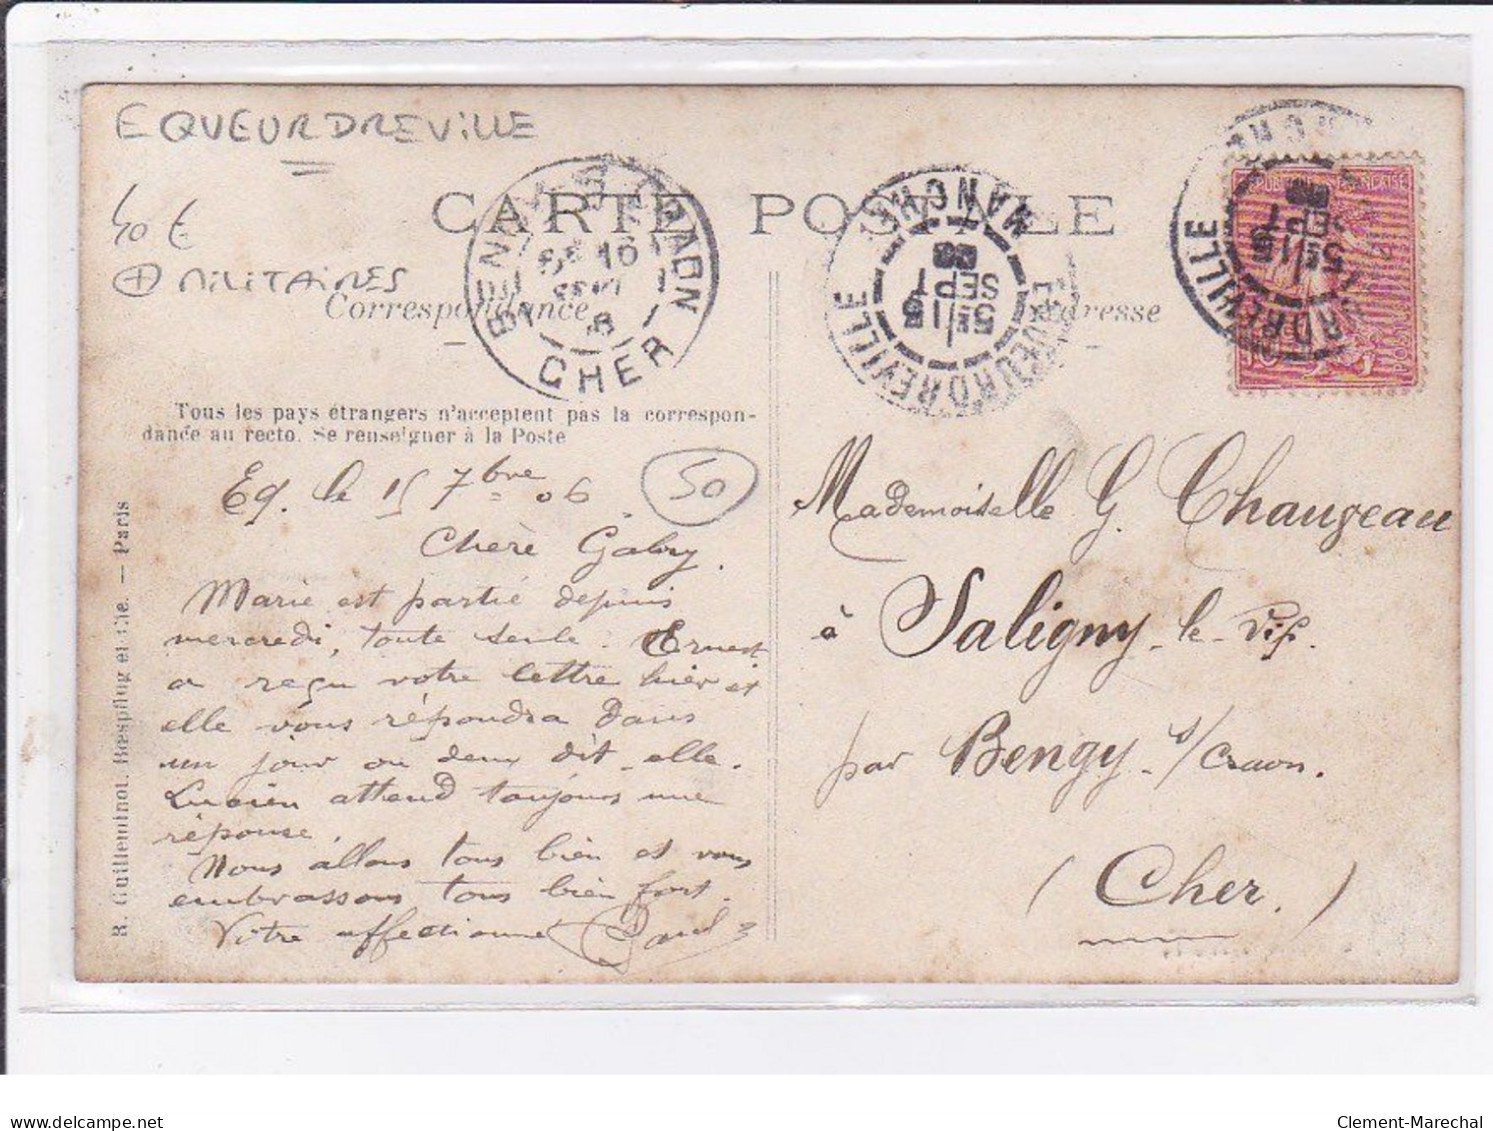 EQUEURDREVILLE
40 €
+ MILITAIRES
CARTE POSTALE
Correspondance
Adresse
BENGY-S-CRAON
16
SEPT
CHER
MANCHE
5E/15
SEPT
06
EQUEURDREVILLE
5E/15
SEPT
EQUEURDREVILLE
REPUBLIQUE FRANÇAISE
POSTES
10
Tous les pays étrangers n'acceptent pas la correspon-
dance au recto. Se renseigner à la Poste
R. Guilleminot, Bœspflug et Cie. — Paris
Eq. le 15 7bre 06
50
Chère Gaby.
Marie est partie depuis
mercredi, toute seule. Ernest
a reçu votre lettre hier et
elle vous répondra dans
un jour ou deux dit-elle.
Lucien attend toujours une
réponse.
Nous allons tous bien et vous
embrassons tous bien fort.
Votre affectionné Paul
Mademoiselle G. Chaugeau
à Saligny-le-Vif.
par Bengy-s/Craon.
(Cher.)
delcampe.net
Clement-Marechal